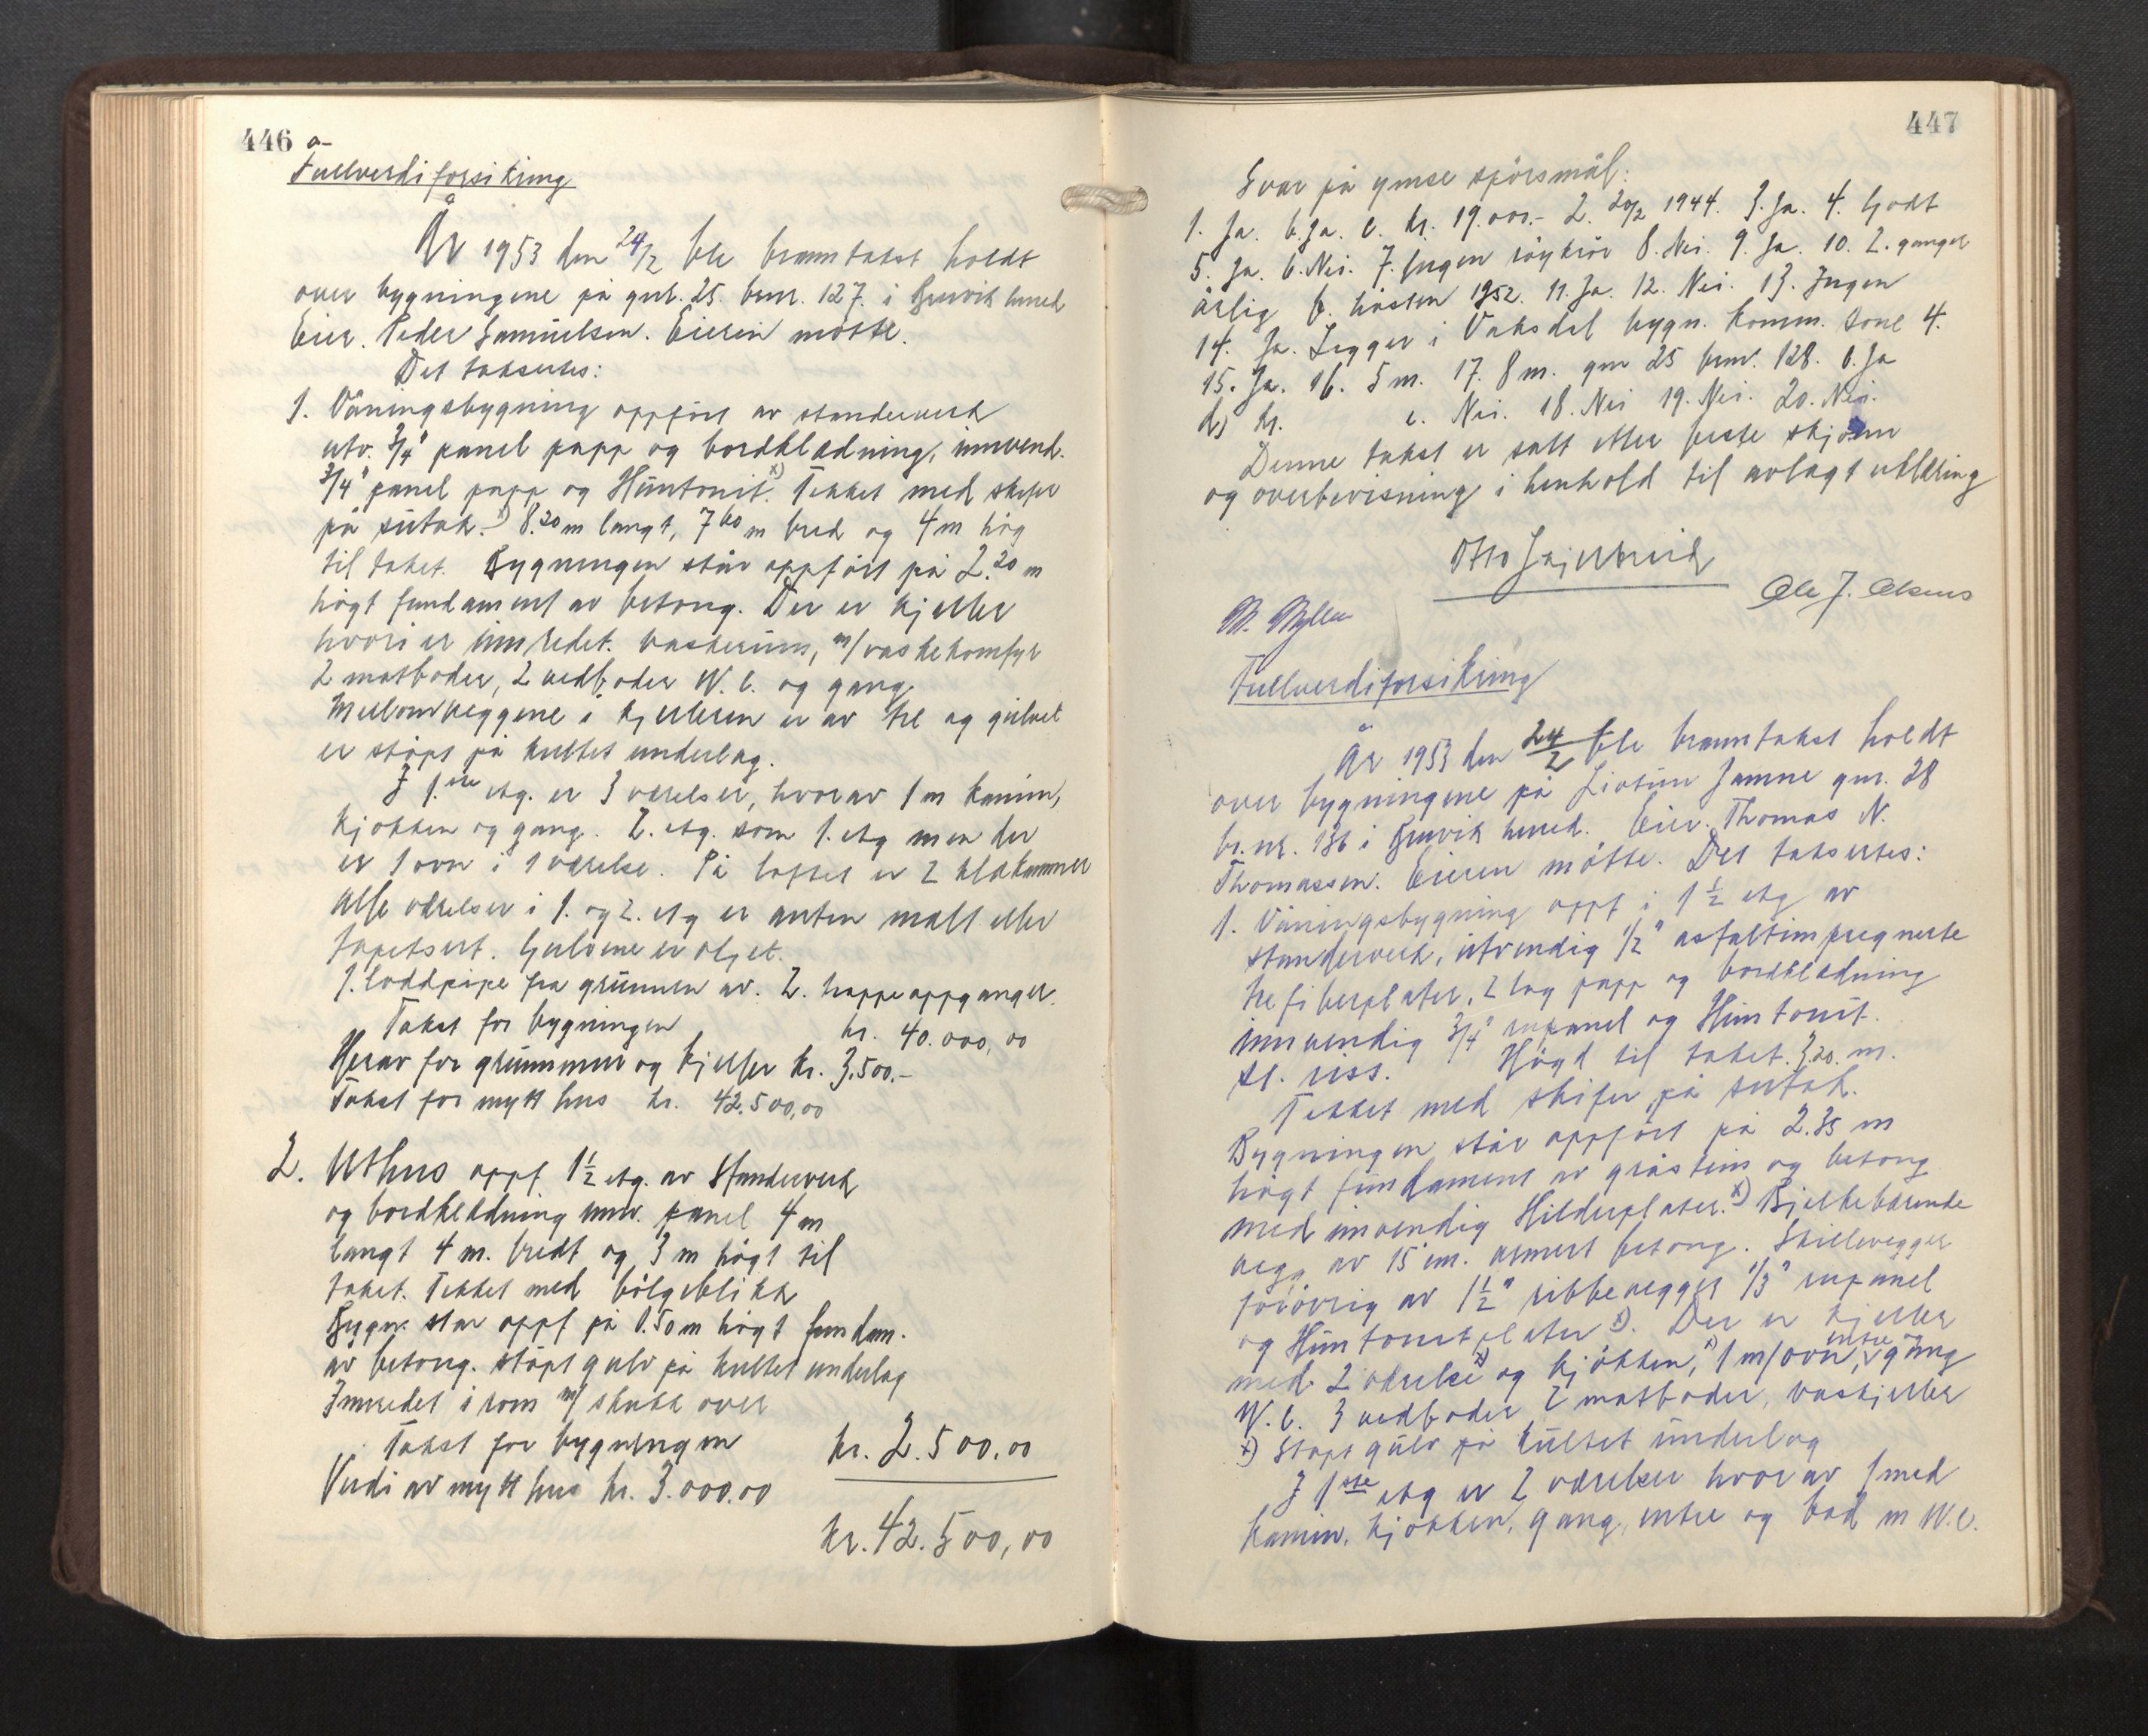 446 a
Fullverdiforsikring
År 1953 den 24/2 ble branntakst holdt
over bygningene på gnr. 25. bnr. 127. i Bruvik herred
Eier. Peder Samuelsen. Eieren møtte.
Det takseres:
1. Våningsbygning oppført av standerverk
utv. 3/4" panel papp og bordklædning, innvend.
3/4" panel papp og Huntonit. x) Tekket med skifer
på sutak. x) 8.20 m langt, 7.60 m bred og 4 m høg
til taket. Bygningen står oppført på 2.20 m
høgt fundament av betong. Der er kjeller
hvori er innredet. vaskerum, m/vaskekomfyr
2 matboder, 2 vedboder W.C. og gang
Mellomveggene i kjelleren er av tre og gulvet
er støpt på kultet underlag.
I 1.ste etg. er 3 værelser, hvorav 1 m kamin,
kjøkken og gang. 2. etg. som 1. etg men der
er 1 ovn i 1 værelse. På loftet er 2 klækammer
Alle værelser i 1. og 2. etg er anten malt eller
tapetsert. Gulvene er oljet.
1. loddpipe fra grunnen av. 2. trappeoppganger.
Takst for bygningen kr. 40.000,00
Herav for grunnmur og kjeller kr. 3.500.-
Takst for nytt hus kr. 42.500,00
2. Uthus oppf 1½ etg. av Standerverk
og bordklædning innv. panel 4 m
langt 4 m. bredt og 3 m høgt til
taket. Tekket med bølgeblikk
Bygn. står oppf på 0.50 m høgt fundam.
av betong. støpt gulv på kultet underlag
Innredet i rom m/ skukk over
Takst for bygningen kr. 2.500.00
Verdi av nytt hus kr. 3.000.00
kr. 42.500,00
447
Svar på ymse spørsmål:
1. Ja. b. Ja. c. kr. 19.000.- 2. 20/2 1944. 3. Ja. 4. Godt
5. Ja. 6. Nei. 7. Ingen røykrør 8. Nei. 9. Ja. 10. 2. ganger
årlig b. høsten 1952. 11. Ja. 12. Nei. 13. Ingen
14. Ja. Ligger i Vaksdal bygn. komm. sone 4.
15. Ja. 16. 5 m. 17. 8 m. gnr 25 bnr. 128. b. Ja
d) kr. c. Nei. 18. Nei 19. Nei. 20. Nei.
Denne takst er satt etter beste skjønn
og overbevisning i henhold til avlagt erklæring
Ole J. Olsens
Fullverdiforsikring
År 1953 den 24/2 ble branntakst holdt
over bygningene på gnr. 28
br. nr. 136 i Bruvik herred. Eier. Thomas N.
Thomassen. Eieren møtte. Det takseres:
1. Våningsbygning oppf i 1½ etg av
standerverk, utvendig 1/2" asfaltimpregnerte
trefiberplater, 2 lag papp og bordklædning
innvendig 3/4" rupanel og Huntonit.
st. riss. Høgd til taket. 3.20. m.
Tekket med skifer på sutak.
Bygningen står oppført på 2.35 m
høgt fundament av gråstein og betong
med invendig Hilderplater. x) Bjelkebærende
vegg av 15 cm. armert betong. Skillevegger
forøvrig av 1½" ribbevegger 1/3" rupanel
og Huntonitplater x). Der er kjeller
med 2 værelse x) og kjøkken, x) 1 m/ovn, entre gang
W.C. 3 vedboder 2 matboder, vaskjeller
x) Støpt gulv på kultet underlag
I 1ste etg er 2 værelser hvorav 1 med
kamin. kjøkken, gang, entre og bad m W.C.